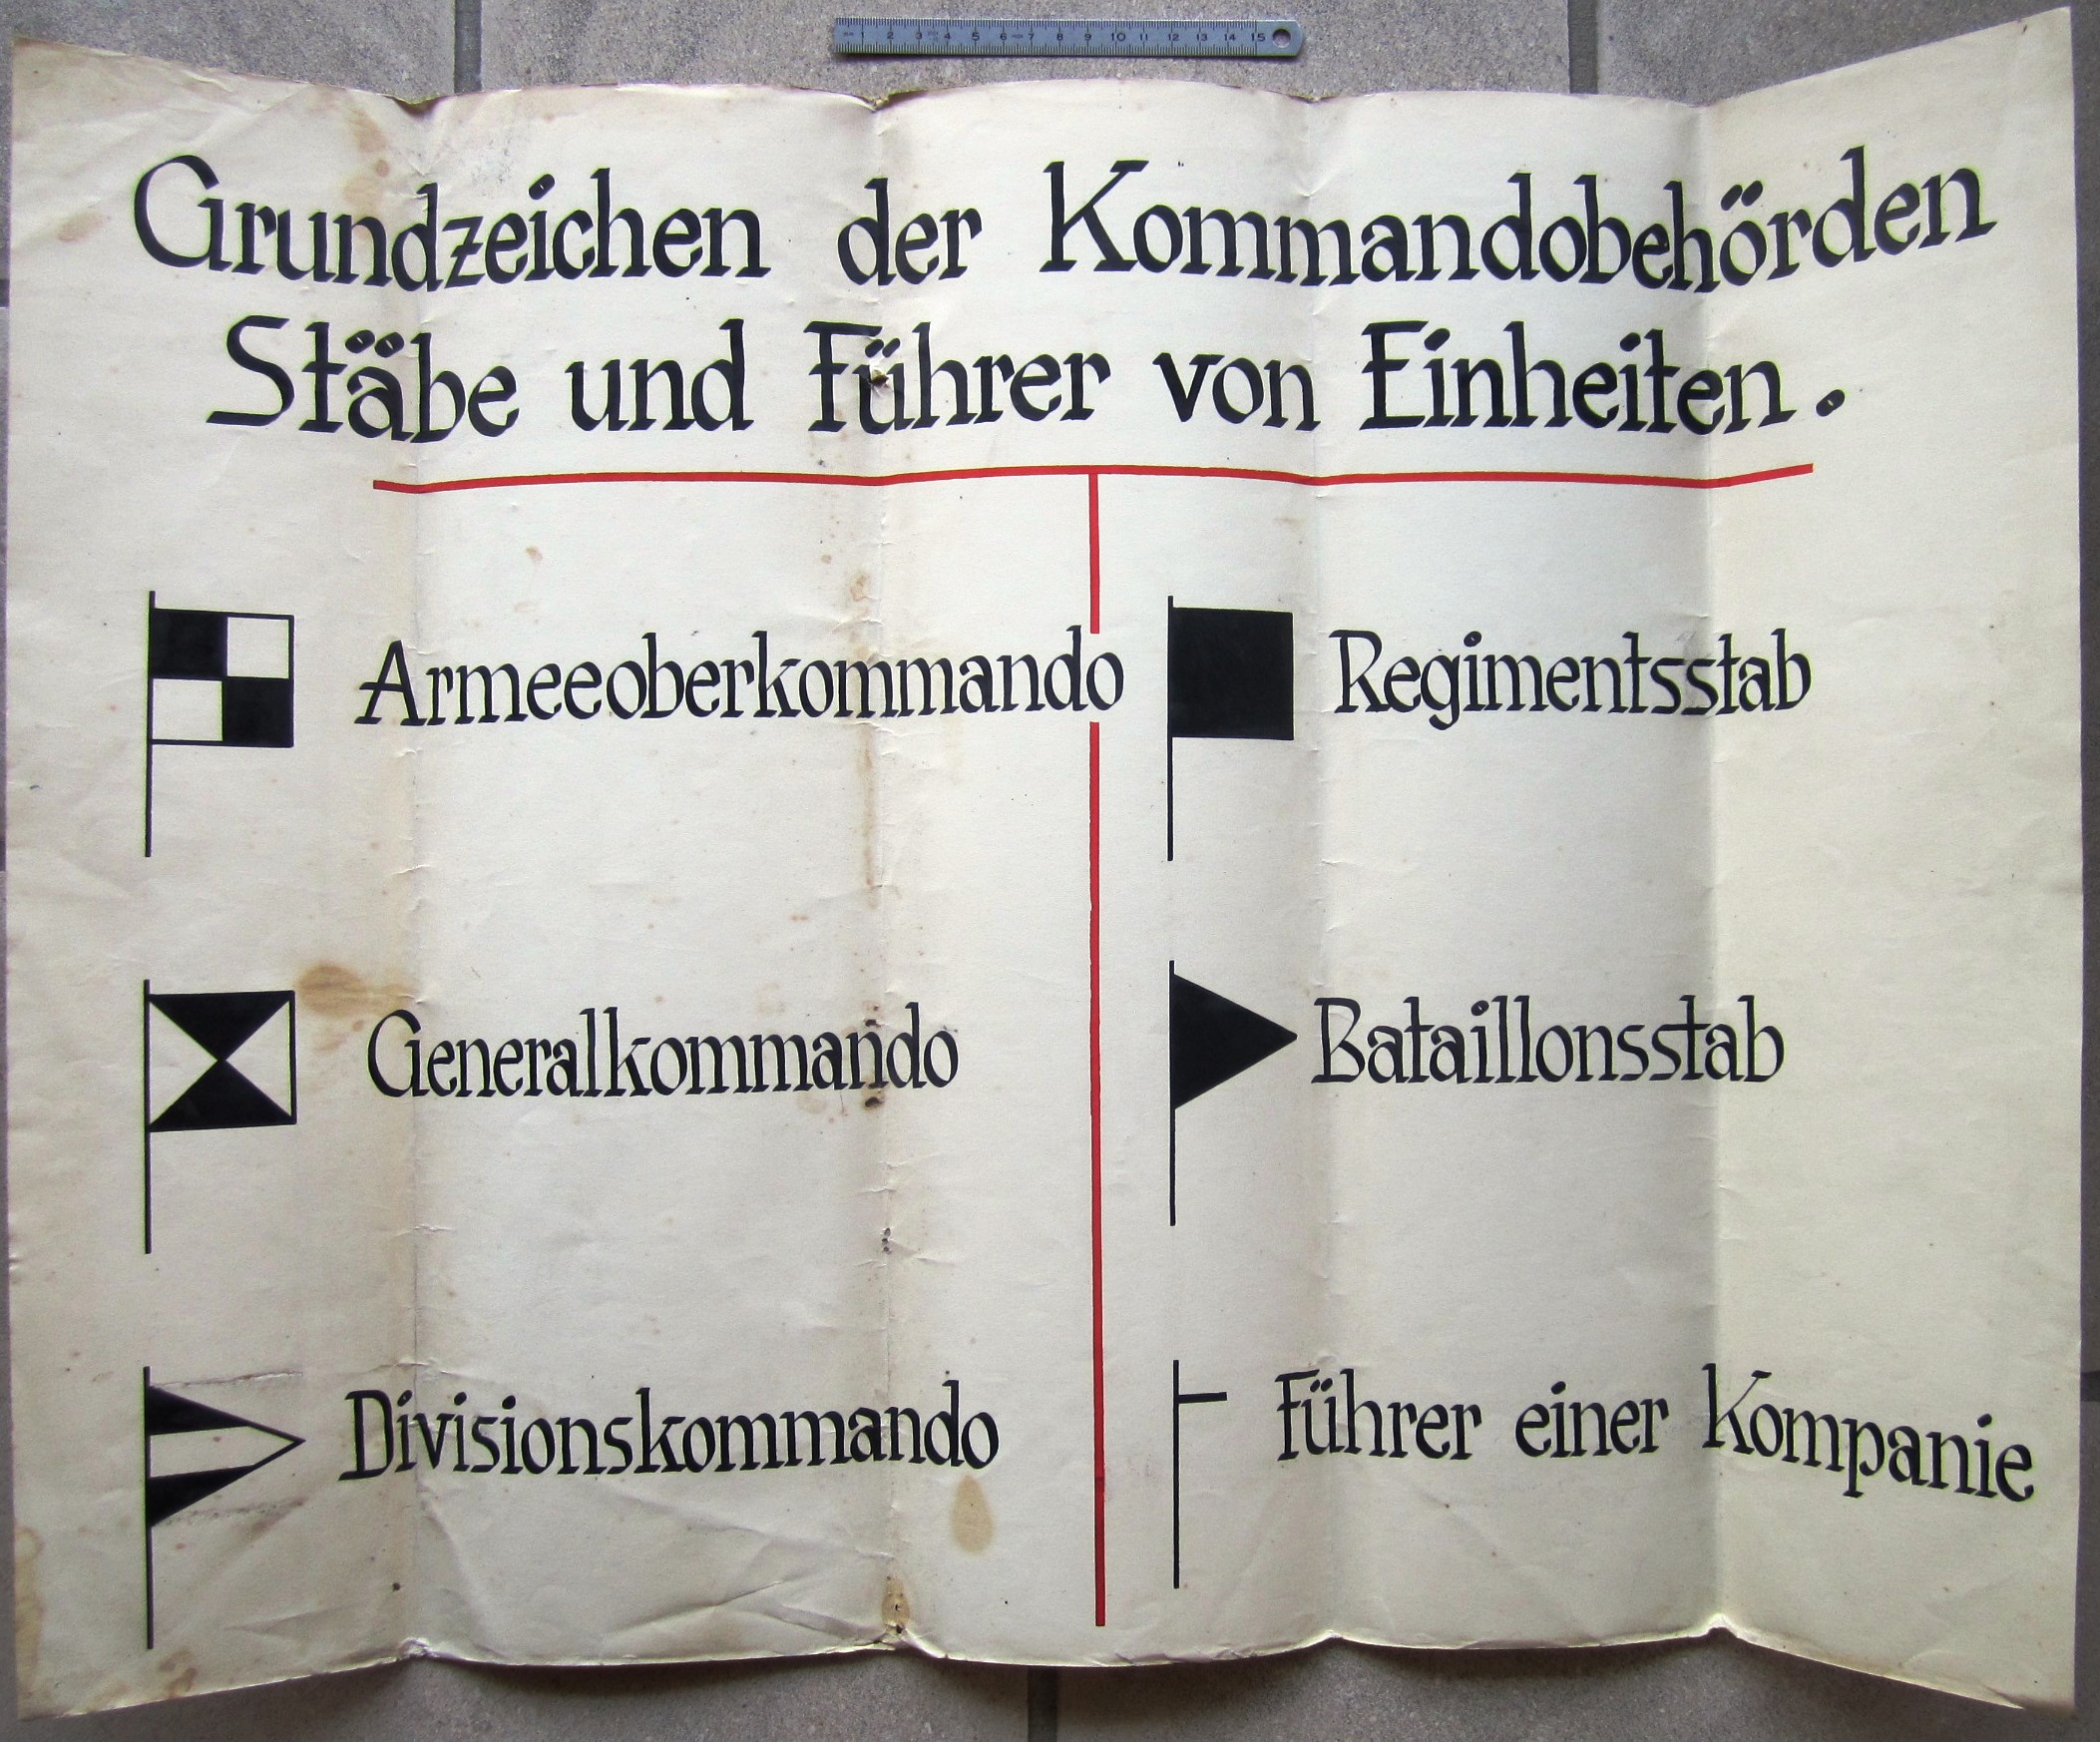 1 2 3 4 5 6 7 8 9 10 11 12 13 14 15
Grundzeichen der Kommandobehörden
Stäbe und Führer von Einheiten.
Armeeoberkommando
Generalkommando
Divisionskommando
Regimentsstab
Bataillonsstab
Führer einer Kompanie